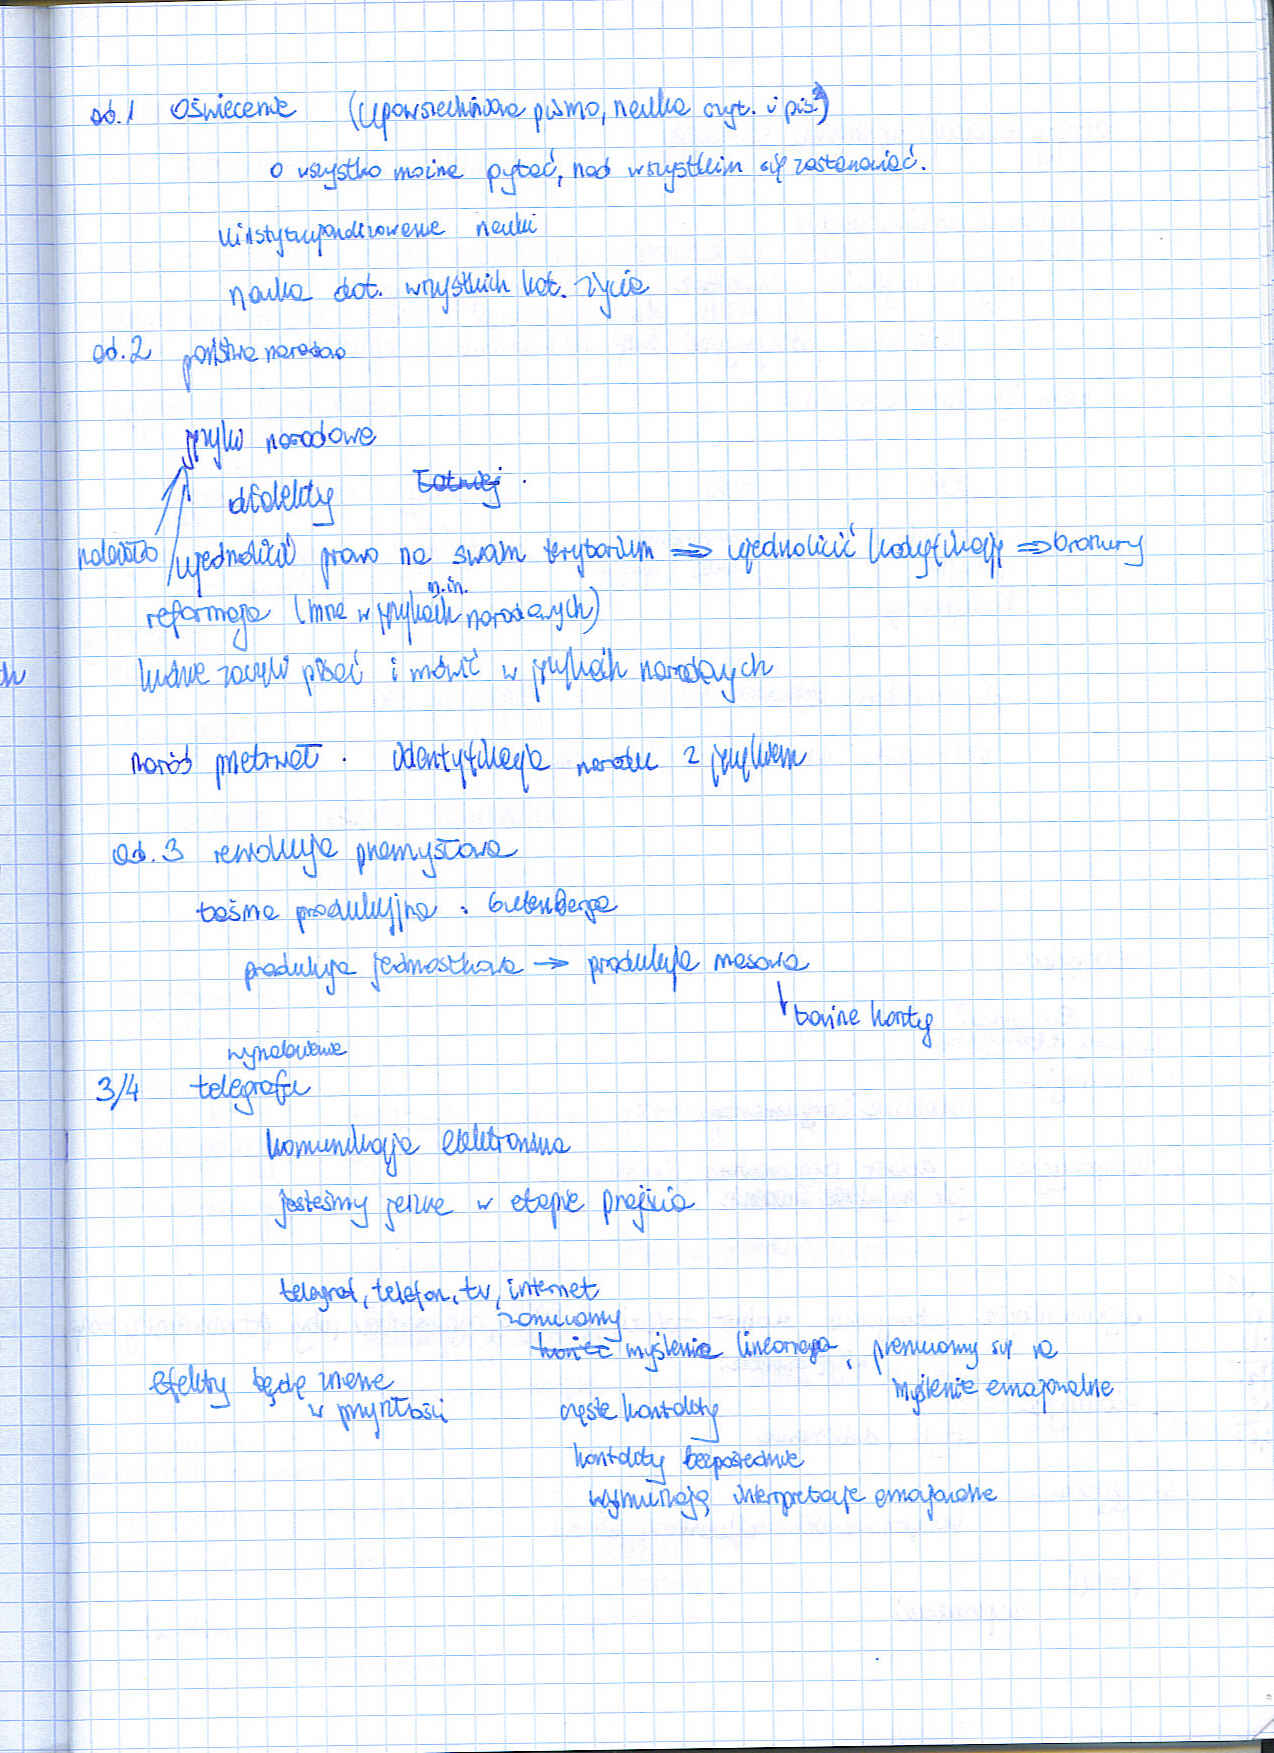 ad.1 Oświecenie (upowszechnione pismo, nauka czyt. i pis.)
o wszystko można pytać, nad wszystkim się zastanawiać.
uinstytucjonalizowanie nauki
nauka dot. wszystkich kat. życia
ad.2 państwa narodow
języki narodowe
dialekty
należało ujednolicić prawo na swoim terytorium => ujednolicić kodyfikację =>
reformacja (inne w językach m.in. narodowych)
ludzie zaczęli pisać i mówić w językach narodowych
naród przetrwał. identyfikacja narodu z językiem
ad.3 rewolucja przemysłowa
taśma produkcyjna. Gutenberga
produkcja jednostkowa → produkcja masowa
tanie
wynalezienie
3/4 telegrafu
komunikacja elektroniczna
jesteśmy jeszcze w etapie przejścia
telegraf, telefon, tv, internet
myślenie linearnego, przenosimy się na
efekty będą znane
myślenie emocjonalne
w przyszłości
częste kontakty
kontakty bezpośrednie
wymuszają interpretacje emocjonalne